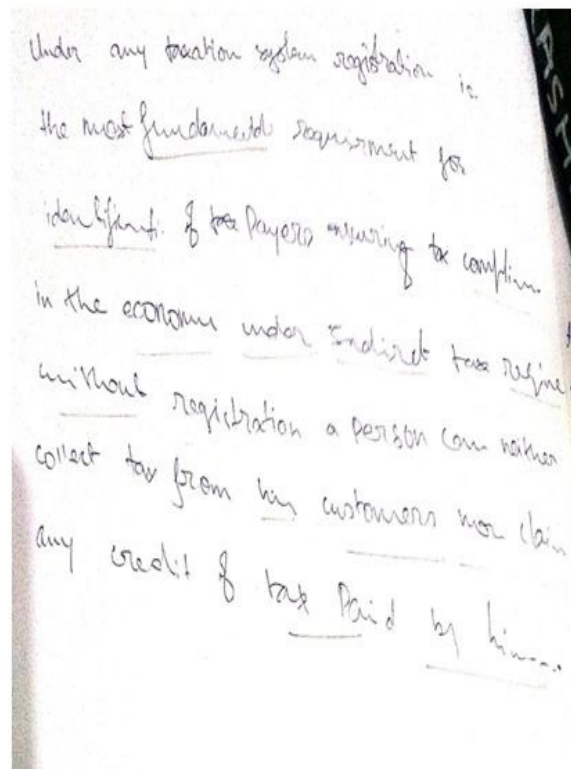 Under any taxation system registration is
the most fundamental requirment for
identificati. of tax Payers ensuring tax complian..
in the economy under Indirect tax regime.
without registration a person can neither
collect tax from his customers nor claim
any credit of tax Paid by him....
ASH